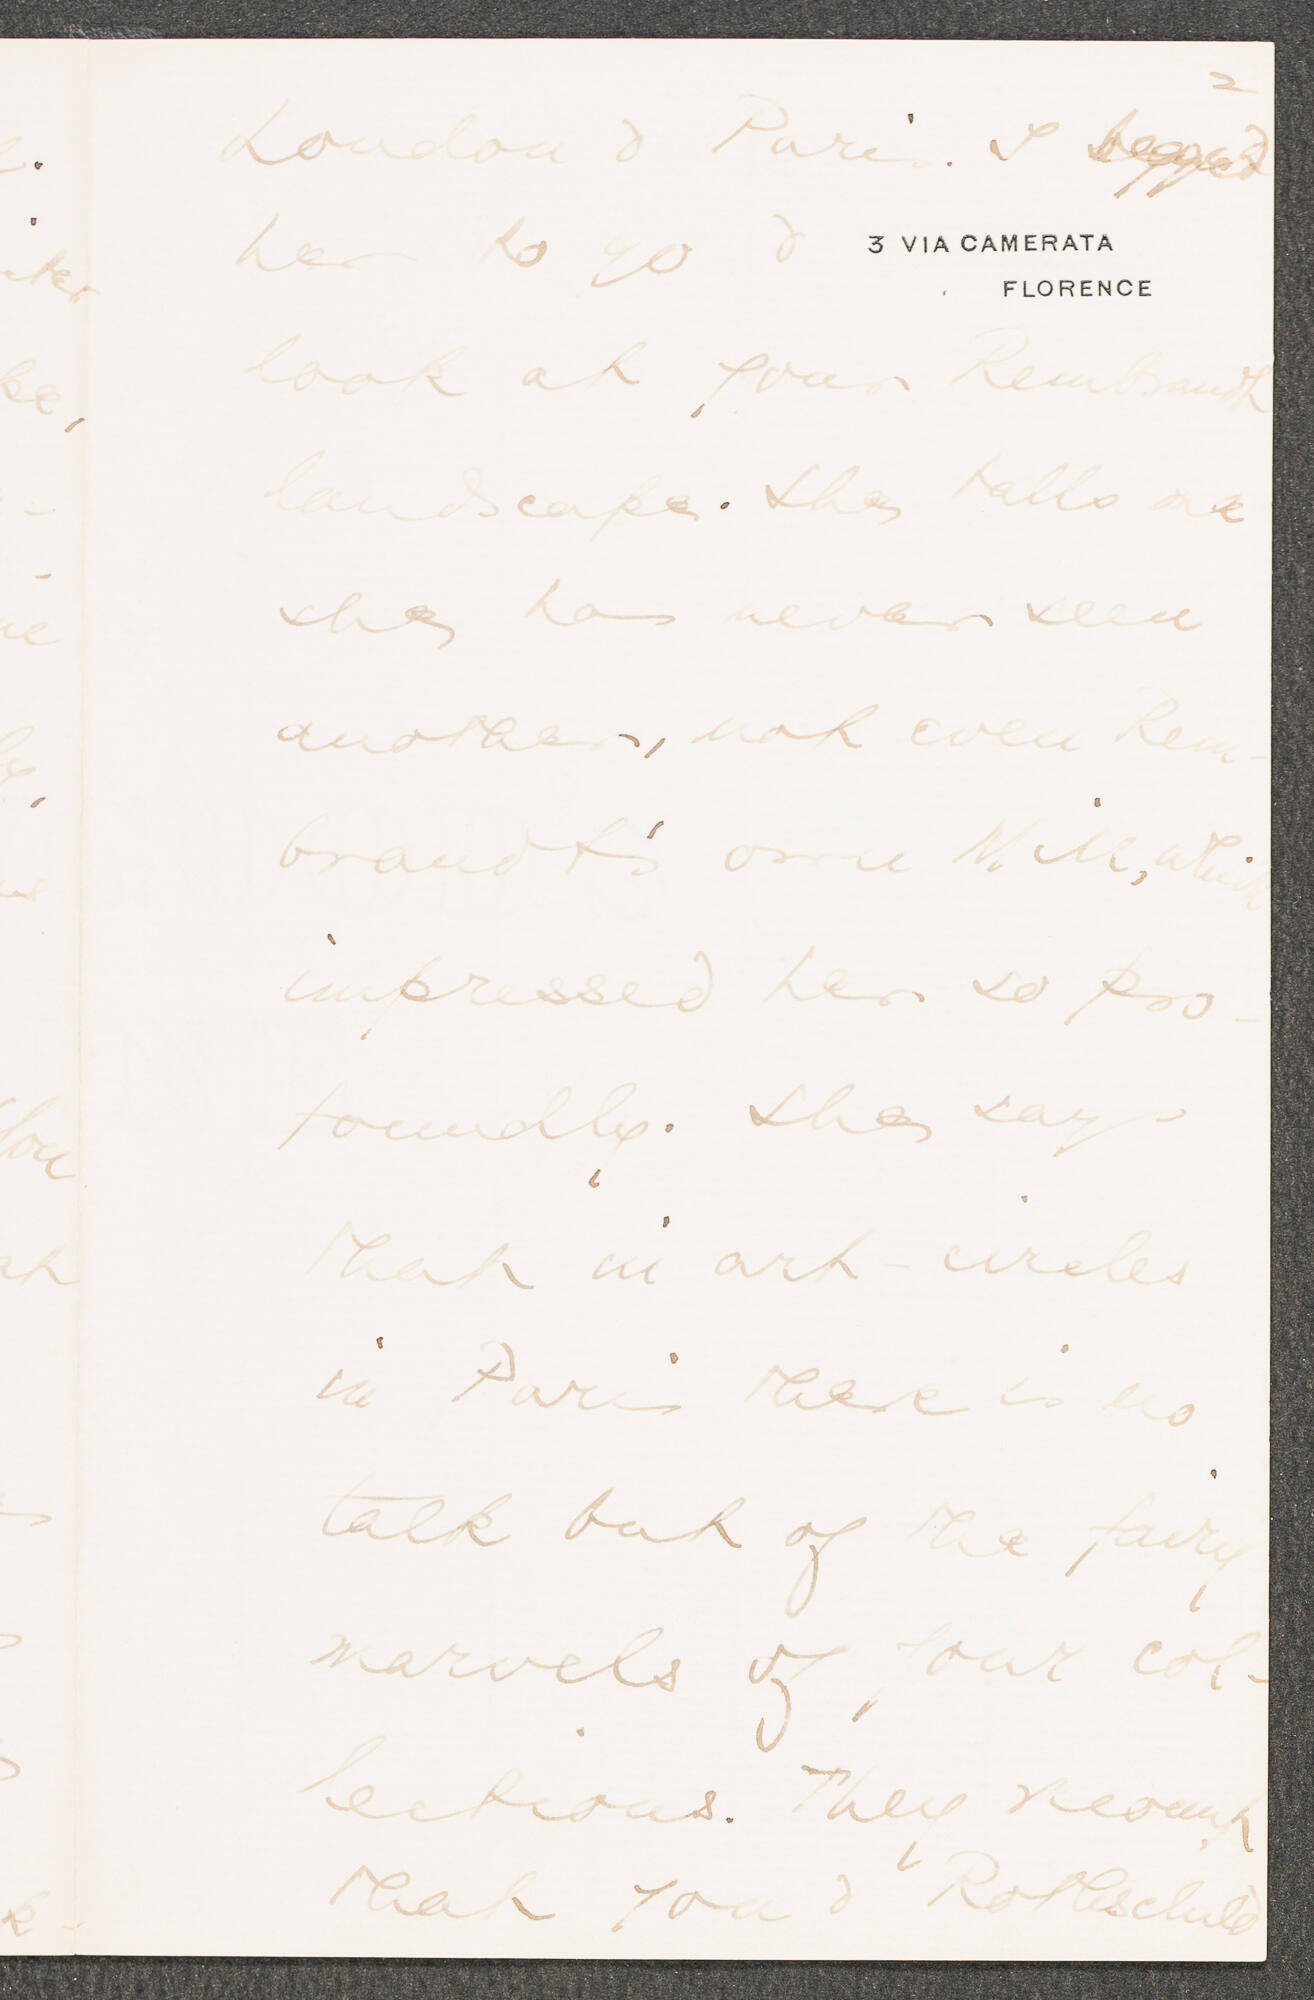 2
London & Paris. I begged
her to go &
3 VIA CAMERATA
FLORENCE
look at your Rembrandt
landscape. She tells me
she has never seen
another, not even Rem-
brandt's own Mill, which
impressed her so pro-
foundly. She says
that in art-circles
in Paris there is no
talk but of the fairy
marvels of your col-
lections. They recount
that you & Rothschild